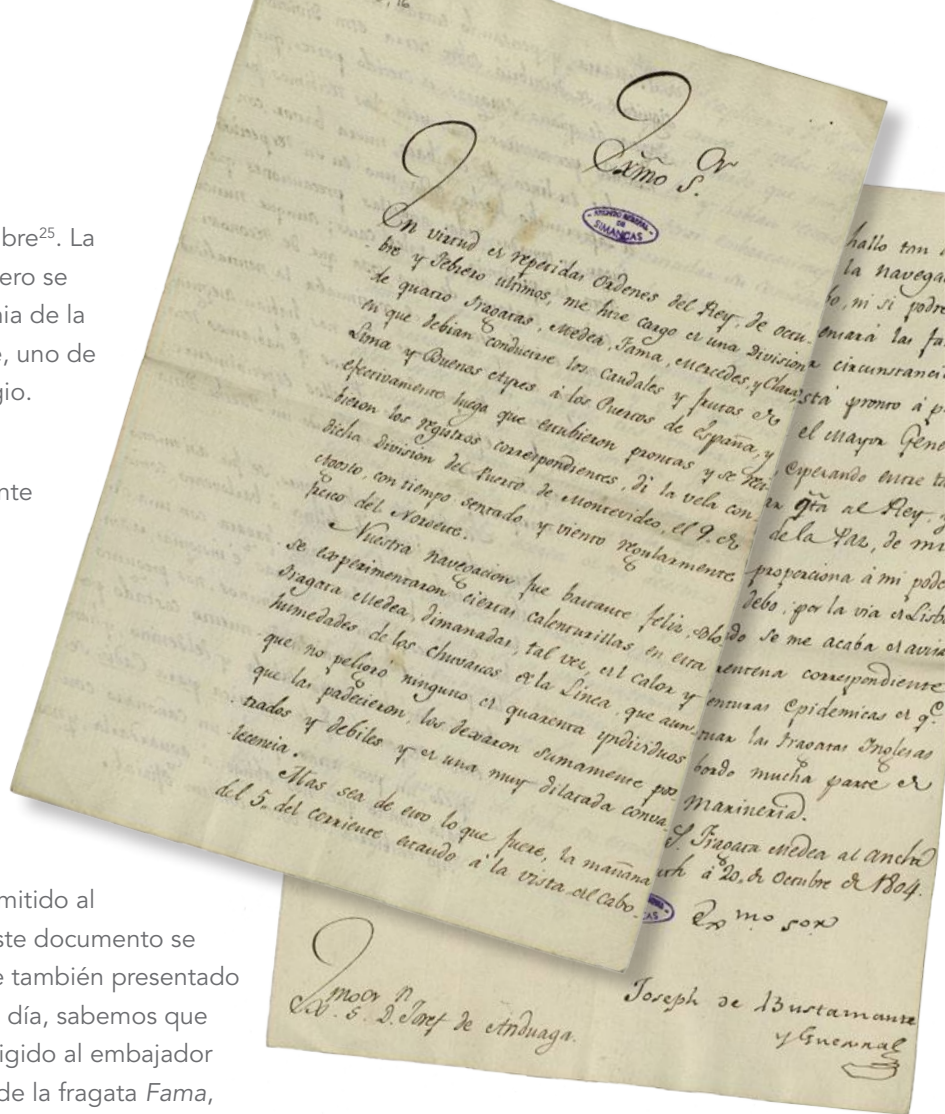 bre²⁵. La
ero se
nia de la
e, uno de
gio.
nte
mitido al
ste documento se
e también presentado
día, sabemos que
igido al embajador
de la fragata Fama,
16
Exmo Sor
ARCHIVO GENERAL
DE
SIMANCAS
En virtud de repetidas ordenes del Rey, de octu-
bre y Febrero ultimos, me hice cargo de una Division
de quatro Fragatas, Medea, Fama, Mercedes, y Clara,
en que debian conducirse los Caudales y frutos de
Lima y Buenos Ayres à los Puertos de España, y
efectivamente luego que estubieron prontas y se reci-
bieron los registros correspondientes, di la vela con
dicha Division del Puerto de Montevideo, el 9. de
Agosto, con tiempo sentado, y viento regularmente
fresco del Noroeste.
Nuestra navegacion fue bastante feliz, solo
se experimentaron ciertas calenturillas en esta
Fragata Medea, dimanadas, tal vez, del calor y
humedades de los chuvascos de la Linea, que aun-
que no peligró ninguno de quarenta yndividuos
que las padecieron, los dexaron sumamente pos-
trados y debiles y de una muy dilatada conva-
lecencia.
Mas sea de esto lo que fuere, la mañana
del 5. del corriente estando à la vista del Cabo
hallo tan
la navega
bo, ni si podre
ensará las fa
circunstanci
stá pronto à p
el Mayor Gene
esperando entre ta
gta al Rey,
de la Paz, de mi
proporciona à mi pode
debo, por la via de Lisb
do se me acaba de avisa
rentena correspondiente
enturas epidemicas de q.e
tuar las Fragatas Inglesas
bordo mucha parte de
Marineria.
Fragata Medea al ancla
à 20. de Octubre de 1804.
AS
Exmo sor
Joseph de Bustamante
y Guerra
Exmo Sor Dn Josef de Anduaga.